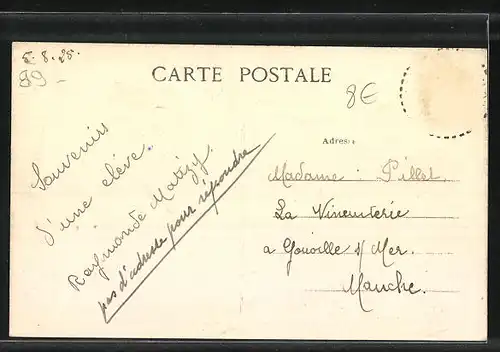 5.8.25.
99 -
CARTE POSTALE
8€
Souvenirs
d'une elève.
Raymonde
pas d'adresse pour répondre
Adresse
Madame Pillet
La
a Gouville s/ Mer.
Manche.